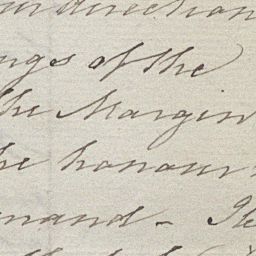 direction
ngs of the
the Margin
the honour
mand - I